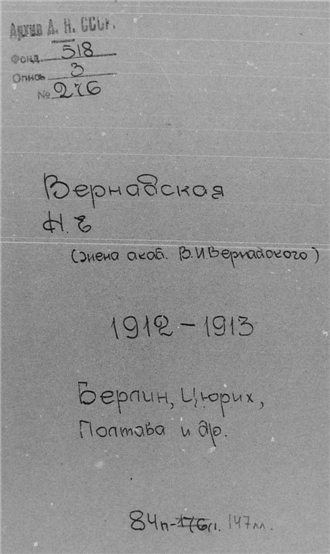 Архив А. Н. СССР.
Фонд 518
Опись 3
№ 276
Вернадская
Н. Е
(жена акад. В.И Вернадского)
1912 – 1913
Берлин, Цюрих,
Полтава и др.
84п- 147лл.